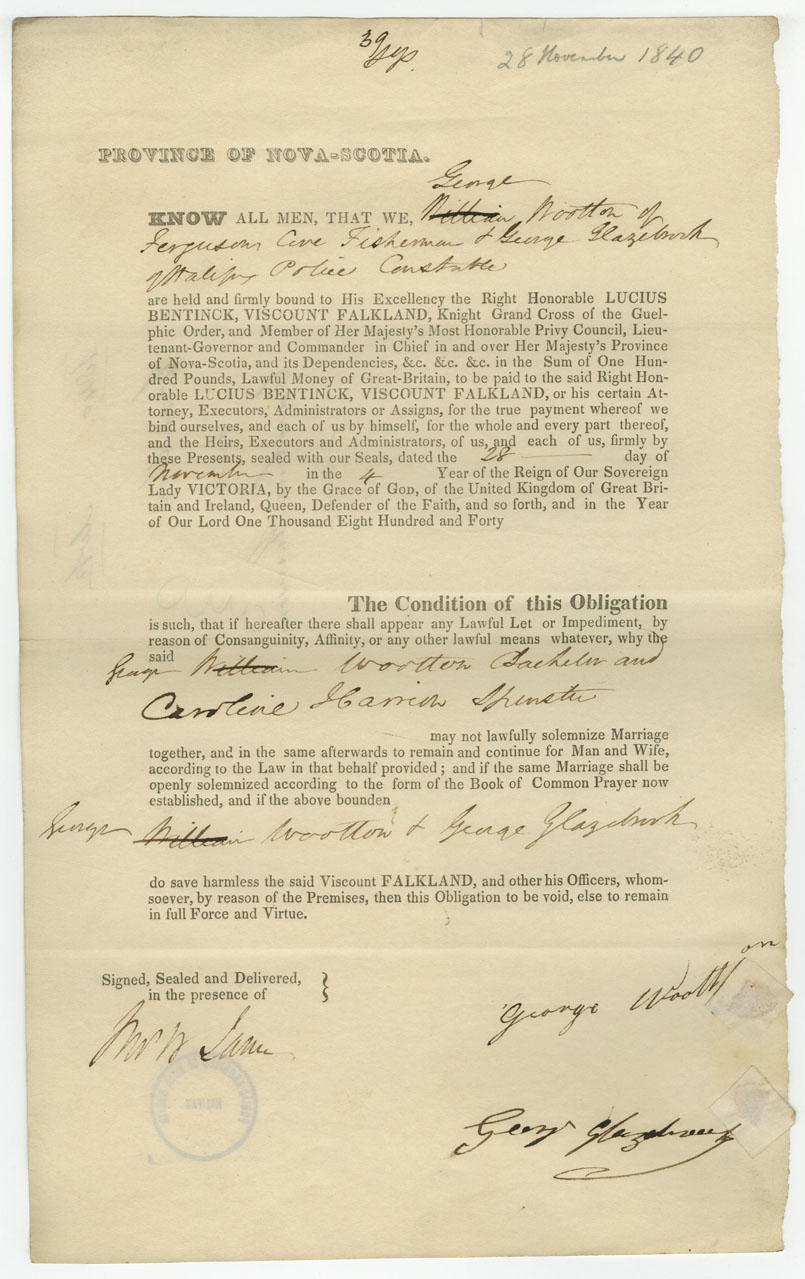 28 November 1840
PROVINCE OF NOVA-SCOTIA.
George
KNOW ALL MEN, THAT WE, William Wootton of
Ferguson Cove Fisherman & George Glazebrook
of Halifax Police Constable
are held and firmly bound to His Excellency the Right Honorable LUCIUS
BENTINCK, VISCOUNT FALKLAND, Knight Grand Cross of the Guel-
phic Order, and Member of Her Majesty's Most Honorable Privy Council, Lieu-
tenant-Governor and Commander in Chief in and over Her Majesty's Province
of Nova-Scotia, and its Dependencies, &c. &c. &c. in the Sum of One Hun-
dred Pounds, Lawful Money of Great-Britain, to be paid to the said Right Hon-
orable LUCIUS BENTINCK, VISCOUNT FALKLAND, or his certain At-
torney, Executors, Administrators or Assigns, for the true payment whereof we
bind ourselves, and each of us by himself, for the whole and every part thereof,
and the Heirs, Executors and Administrators, of us, and each of us, firmly by
these Presents, sealed with our Seals, dated the 28 day of
November in the 4 Year of the Reign of Our Sovereign
Lady VICTORIA, by the Grace of GOD, of the United Kingdom of Great Bri-
tain and Ireland, Queen, Defender of the Faith, and so forth, and in the Year
of Our Lord One Thousand Eight Hundred and Forty
The Condition of this Obligation
is such, that if hereafter there shall appear any Lawful Let or Impediment, by
reason of Consanguinity, Affinity, or any other lawful means whatever, why the
said
George William Wootton Bachelor and
Caroline Harrion Spinster
may not lawfully solemnize Marriage
together, and in the same afterwards to remain and continue for Man and Wife,
according to the Law in that behalf provided; and if the same Marriage shall be
openly solemnized according to the form of the Book of Common Prayer now
established, and if the above bounden
George William Wootton & George Glazebrook
do save harmless the said Viscount FALKLAND, and other his Officers, whom-
soever, by reason of the Premises, then this Obligation to be void, else to remain
in full Force and Virtue.
Signed, Sealed and Delivered,
in the presence of
George Wootton
George Glazebrook